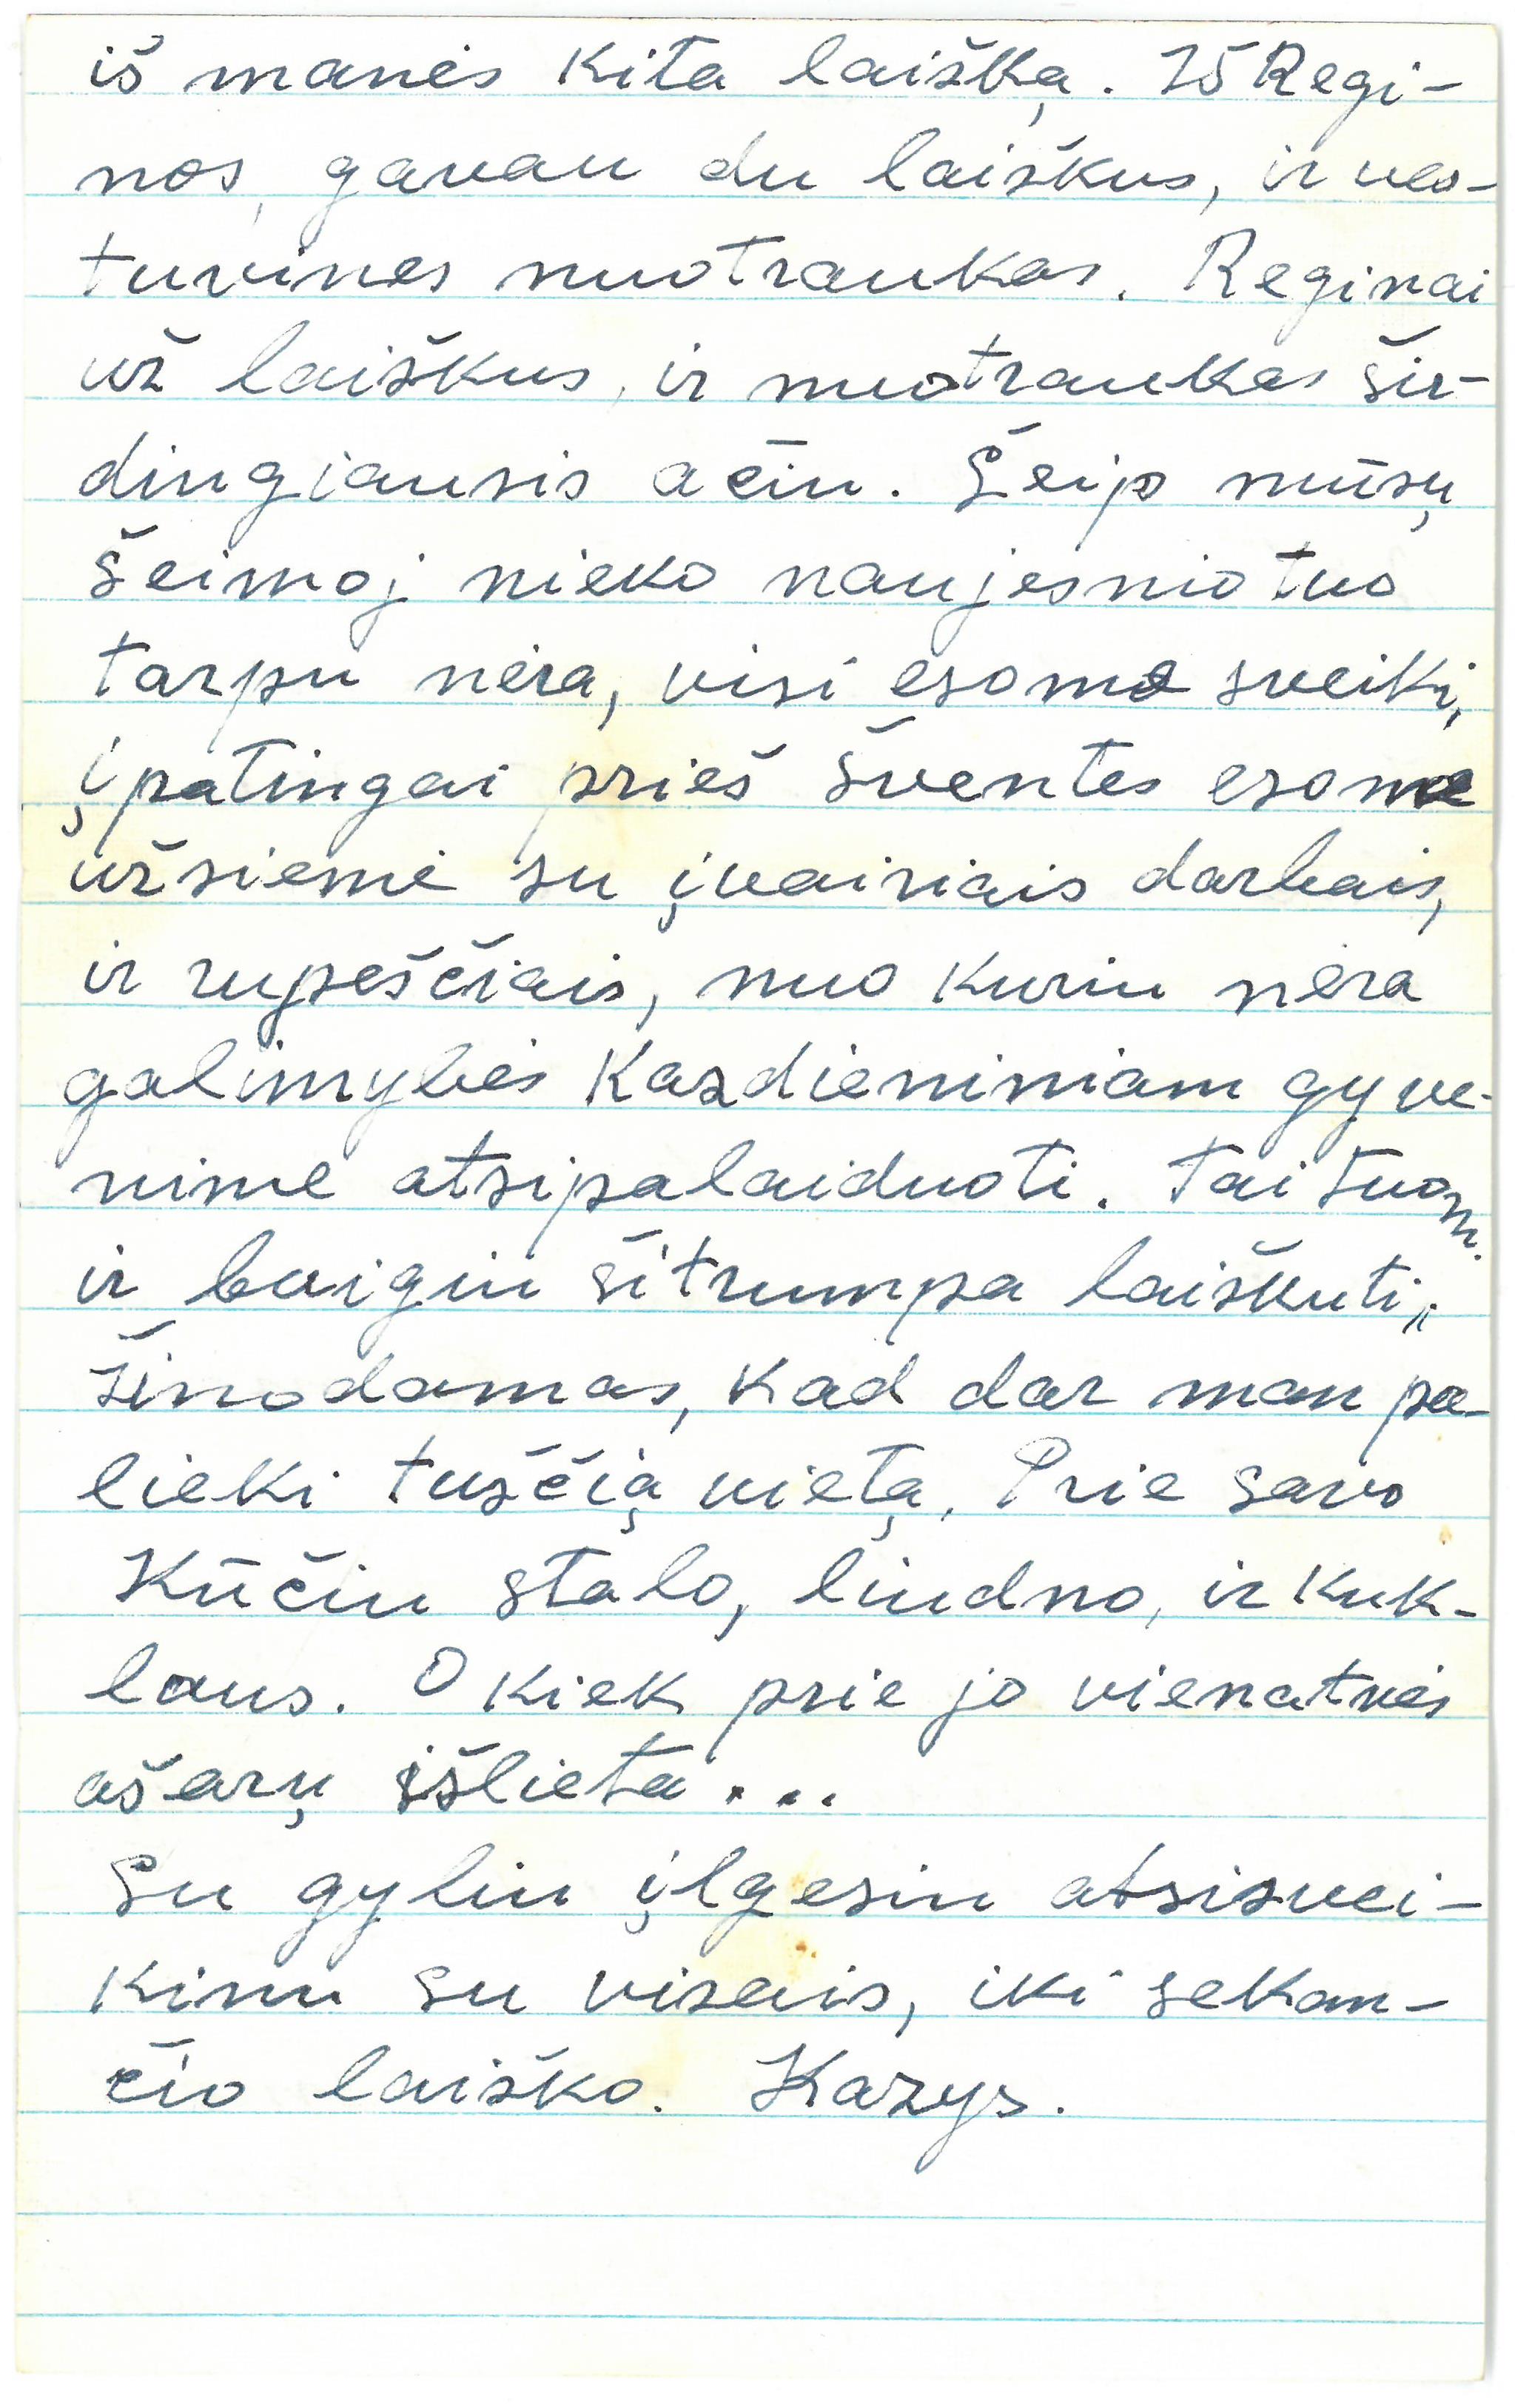 iš manės kita laišką. Iš Regi-
nos, gavau du laiškus, ir ves-
tuvines nuotraukas. Reginai
už laiškus, ir nuotraukas šir-
dingiausis ačiu. Šeip mūsų
šeimoj nieko naujesnio tuo
tarpu nėra, visi esome sveiki,
įpatingai prieš šventes esome
užsiemė su įvairiais darbais,
ir rupeščiais, nuo kuriu nėra
galimybės kazdieniniam gyve-
nime atsipalaiduoti. Tai tuom.
ir baigiu ši trumpa laiškuti,
žinodamas, kad dar man pa-
lieki tuščią vietą, Prie savo
Kūčiu stalo, liudno, ir kuk-
laus. O kiek prie jo vienatvės
ašarų išlieta...
Su gyliu įlgesiu atsisvei-
kinu su visais, iki sekan-
čio laiško. Kazys.